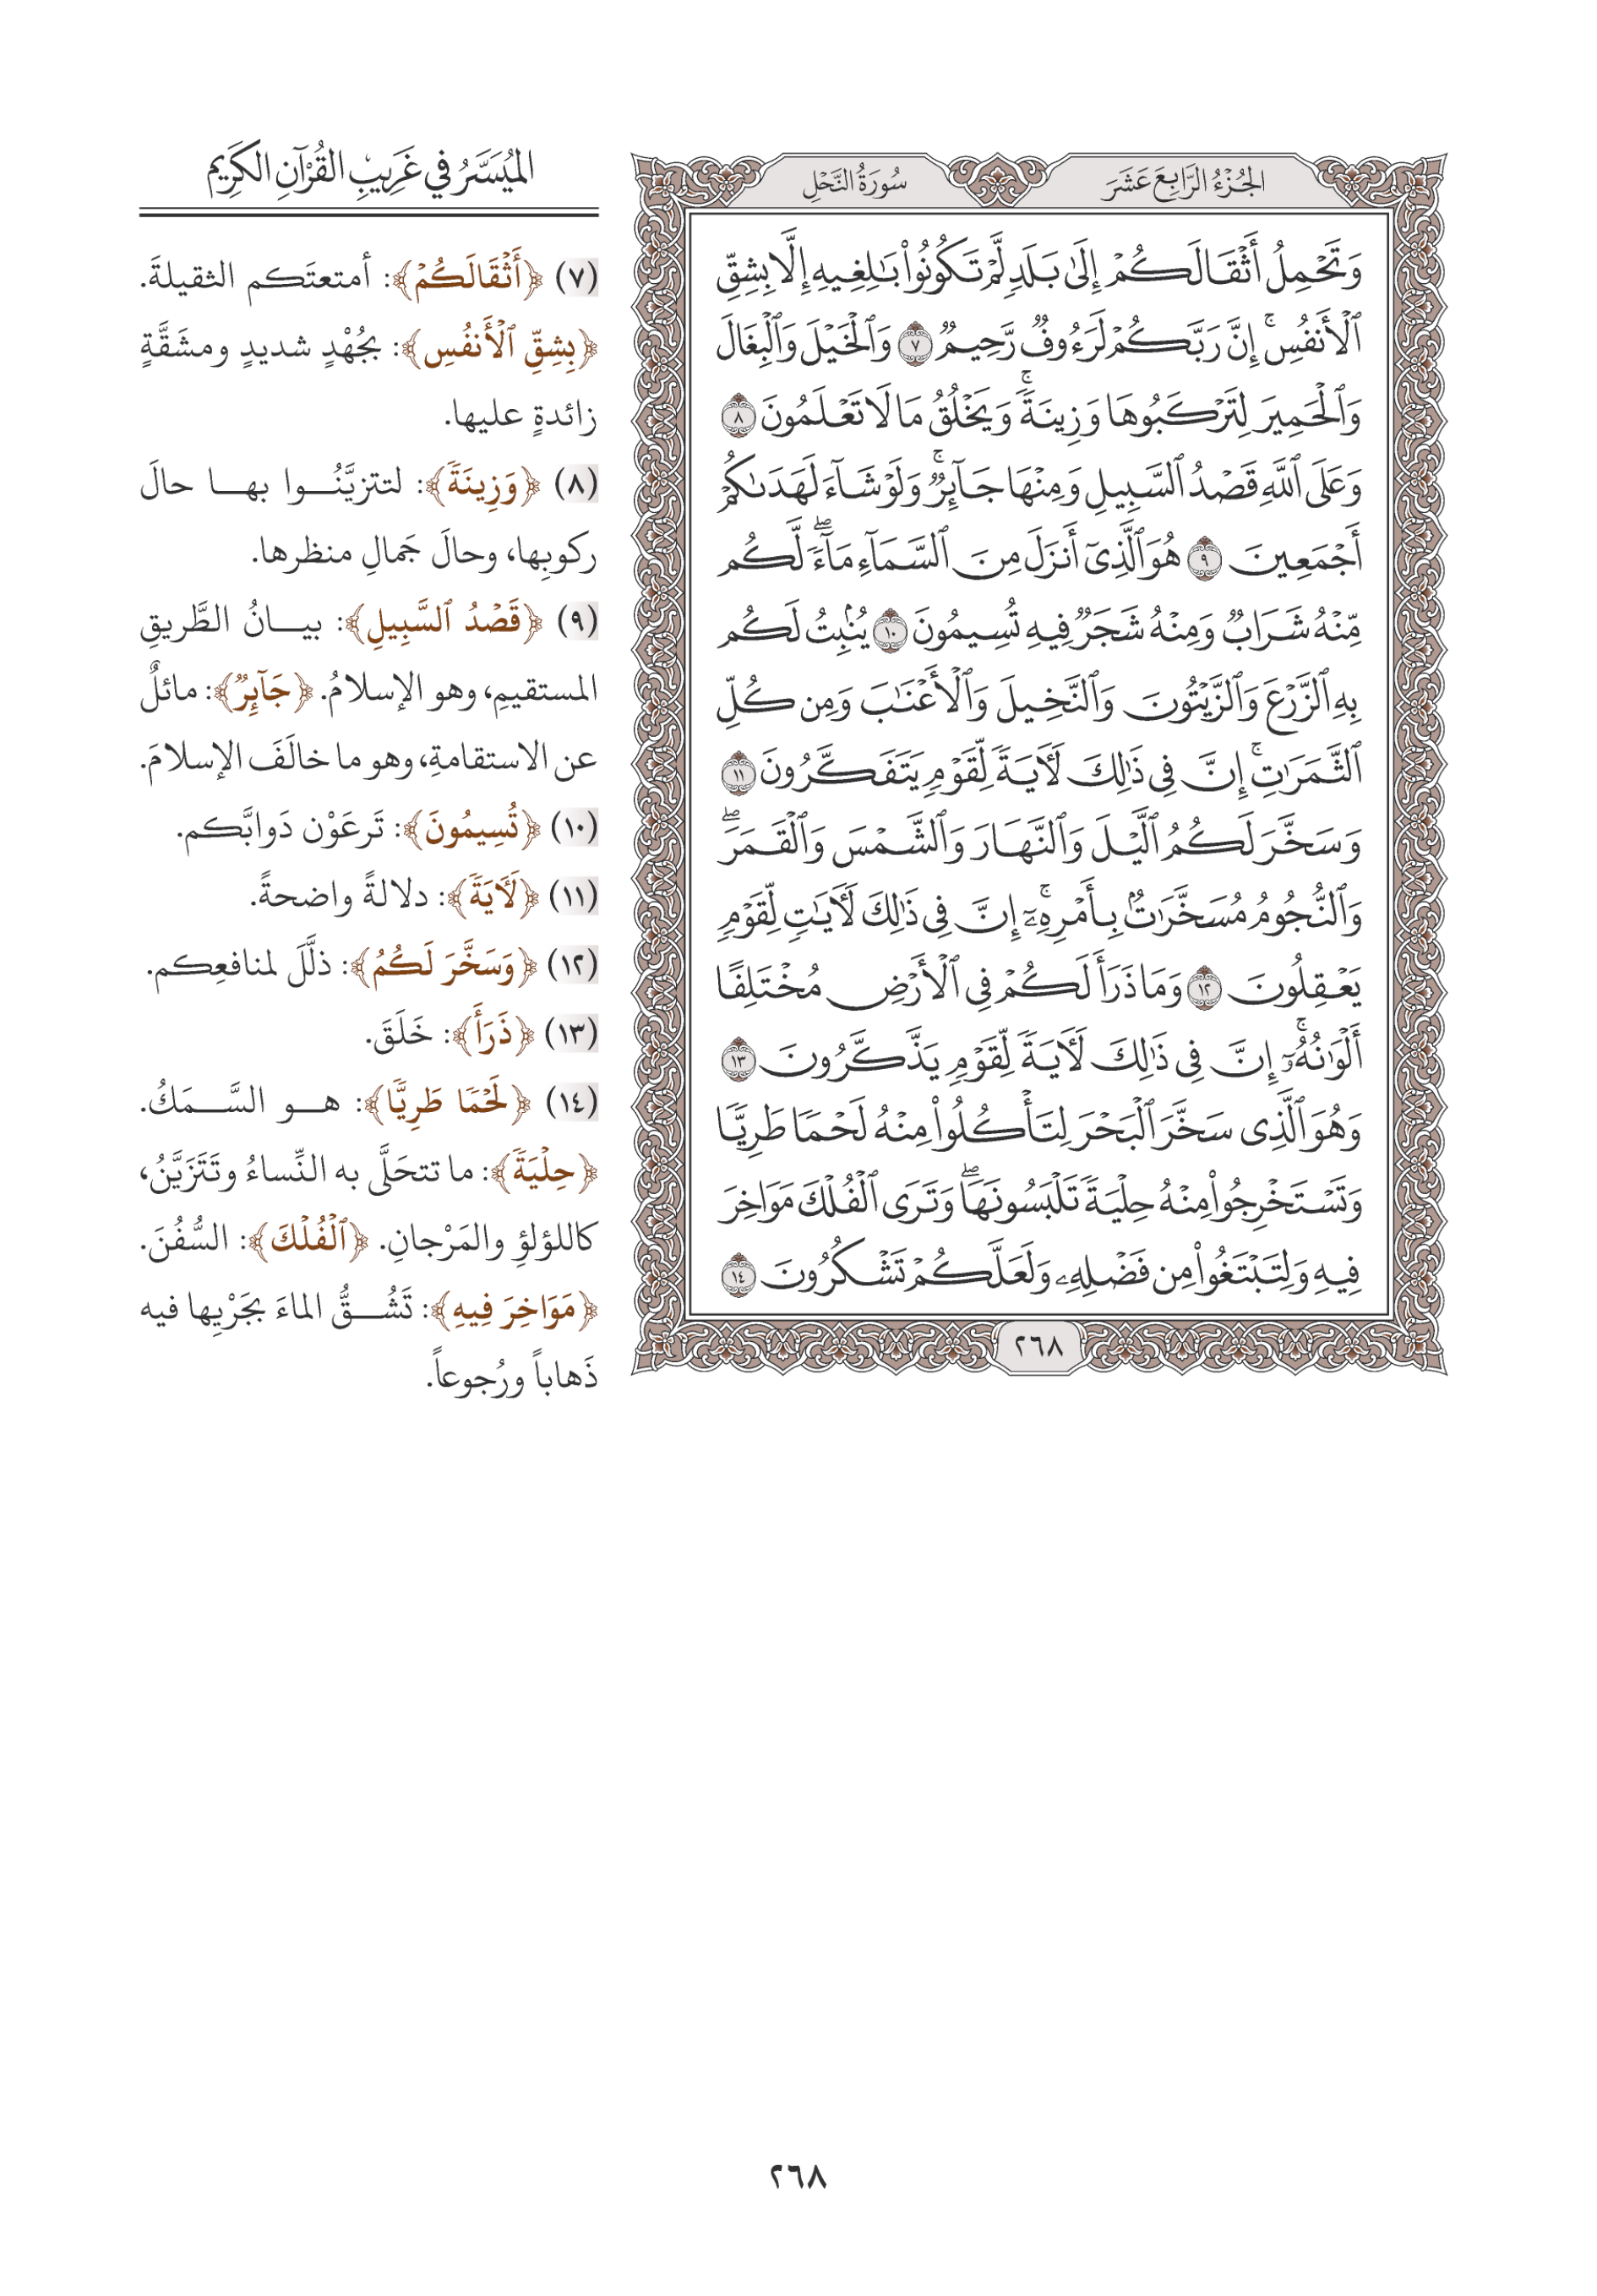 الجُزْءُ الرَّابِعَ عَشَرَ
سُورَةُ النَّحْلِ
وَتَحْمِلُ أَثْقَالَكُمْ إِلَىٰ بَلَدٍ لَّمْ تَكُونُواْ بَٰلِغِيهِ إِلَّا بِشِقِّ
ٱلْأَنفُسِۚ إِنَّ رَبَّكُمْ لَرَءُوفٌ رَّحِيمٌ ٧ وَٱلْخَيْلَ وَٱلْبِغَالَ
وَٱلْحَمِيرَ لِتَرْكَبُوهَا وَزِينَةًۚ وَيَخْلُقُ مَا لَا تَعْلَمُونَ ٨
وَعَلَى ٱللَّهِ قَصْدُ ٱلسَّبِيلِ وَمِنْهَا جَآئِرٌۚ وَلَوْ شَآءَ لَهَدَىٰكُمْ
أَجْمَعِينَ ٩ هُوَ ٱلَّذِىٓ أَنزَلَ مِنَ ٱلسَّمَآءِ مَآءًۖ لَّكُم
مِّنْهُ شَرَابٌ وَمِنْهُ شَجَرٌ فِيهِ تُسِيمُونَ ١٠ يُنۢبِتُ لَكُم
بِهِ ٱلزَّرْعَ وَٱلزَّيْتُونَ وَٱلنَّخِيلَ وَٱلْأَعْنَٰبَ وَمِن كُلِّ
ٱلثَّمَرَٰتِۚ إِنَّ فِى ذَٰلِكَ لَأٓيَةً لِّقَوْمٍ يَتَفَكَّرُونَ ١١
وَسَخَّرَ لَكُمُ ٱلَّيْلَ وَٱلنَّهَارَ وَٱلشَّمْسَ وَٱلْقَمَرَۖ
وَٱلنُّجُومُ مُسَخَّرَٰتٌۢ بِأَمْرِهِۦٓۚ إِنَّ فِى ذَٰلِكَ لَأٓيَٰتٍ لِّقَوْمٍ
يَعْقِلُونَ ١٢ وَمَا ذَرَأَ لَكُمْ فِى ٱلْأَرْضِ مُخْتَلِفًا
أَلْوَٰنُهُۥٓۚ إِنَّ فِى ذَٰلِكَ لَأٓيَةً لِّقَوْمٍ يَذَّكَّرُونَ ١٣
وَهُوَ ٱلَّذِى سَخَّرَ ٱلْبَحْرَ لِتَأْكُلُواْ مِنْهُ لَحْمًا طَرِيًّا
وَتَسْتَخْرِجُواْ مِنْهُ حِلْيَةً تَلْبَسُونَهَاۖ وَتَرَى ٱلْفُلْكَ مَوَاخِرَ
فِيهِ وَلِتَبْتَغُواْ مِن فَضْلِهِۦ وَلَعَلَّكُمْ تَشْكُرُونَ ١٤
٢٦٨
المُيَسَّرُ في غَرِيبِ القُرْآنِ الكَرِيمِ
(٧) ﴿أَثْقَالَكُمْ﴾: أمتعتَكم الثقيلةَ.
﴿بِشِقِّ ٱلْأَنفُسِ﴾: بجُهْدٍ شديدٍ ومشَقَّةٍ
زائدةٍ عليها.
(٨) ﴿وَزِينَةً﴾: لتتزيَّنُوا بها حالَ
ركوبِها، وحالَ جَمالِ منظرها.
(٩) ﴿قَصْدُ ٱلسَّبِيلِ﴾: بيانُ الطَّريقِ
المستقيمِ، وهو الإسلامُ. ﴿جَآئِرٌ﴾: مائلٌ
عن الاستقامةِ، وهو ما خالَفَ الإسلامَ.
(١٠) ﴿تُسِيمُونَ﴾: تَرعَوْن دَوابَّكم.
(١١) ﴿لَأٓيَةً﴾: دلالةً واضحةً.
(١٢) ﴿وَسَخَّرَ لَكُمُ﴾: ذلَّلَ لمنافعِكم.
(١٣) ﴿ذَرَأَ﴾: خَلَقَ.
(١٤) ﴿لَحْمًا طَرِيًّا﴾: هو السَّمَكُ.
﴿حِلْيَةً﴾: ما تتحَلَّى به النِّساءُ وتَتَزَيَّنُ،
كاللؤلؤِ والمَرْجانِ. ﴿ٱلْفُلْكَ﴾: السُّفُنَ.
﴿مَوَاخِرَ فِيهِ﴾: تَشُقُّ الماءَ بجَرْيِها فيه
ذَهاباً ورُجوعاً.
٢٦٨